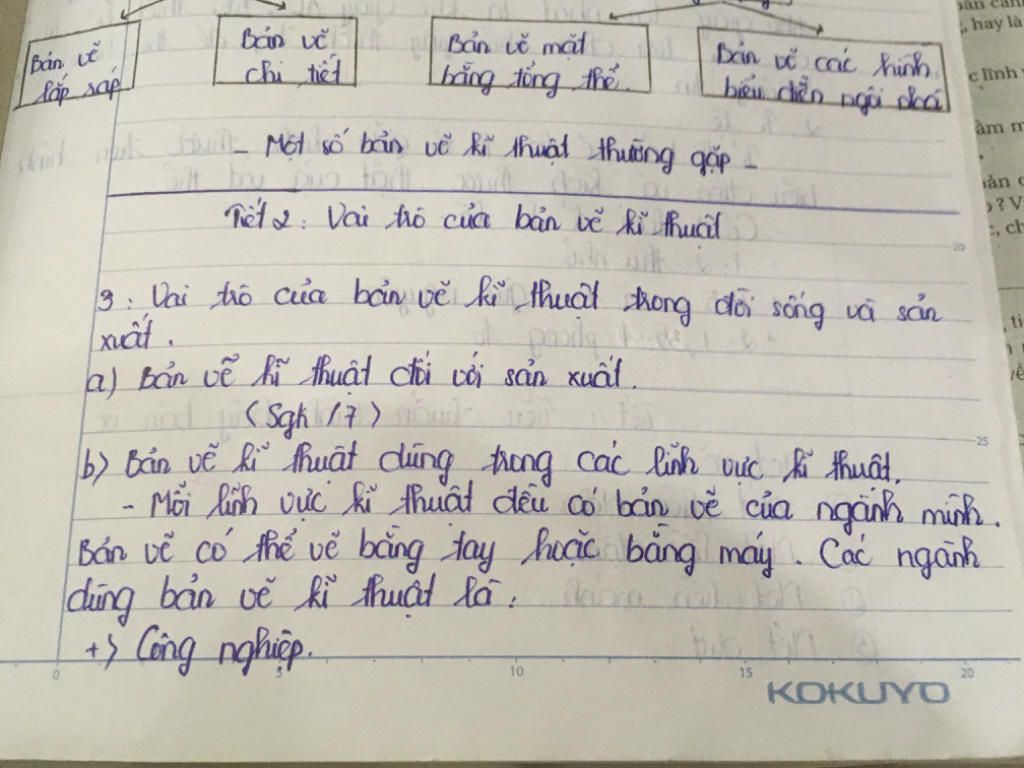 Bản vẽ
lắp sáp
Bản vẽ
chi tiết
Bản vẽ mặt
bằng tổng thể.
Bản vẽ các hình
biểu diễn ngôi nhà
- Một số bản vẽ kĩ thuật thường gặp -
Tiết 2: Vai trò của bản vẽ kĩ thuật
3: Vai trò của bản vẽ kĩ thuật trong đời sống và sản
xuất.
a) Bản vẽ kĩ thuật đối với sản xuất.
(Sgk / 7)
b) Bản vẽ kĩ thuật dùng trong các lĩnh vực kĩ thuật.
- Mỗi lĩnh vực kĩ thuật đều có bản vẽ của ngành mình.
Bản vẽ có thể vẽ bằng tay hoặc bằng máy. Các ngành
dùng bản vẽ kĩ thuật là:
+) Công nghiệp.
20
25
0 5 10 15 20
KOKUYO
hay là
lĩnh